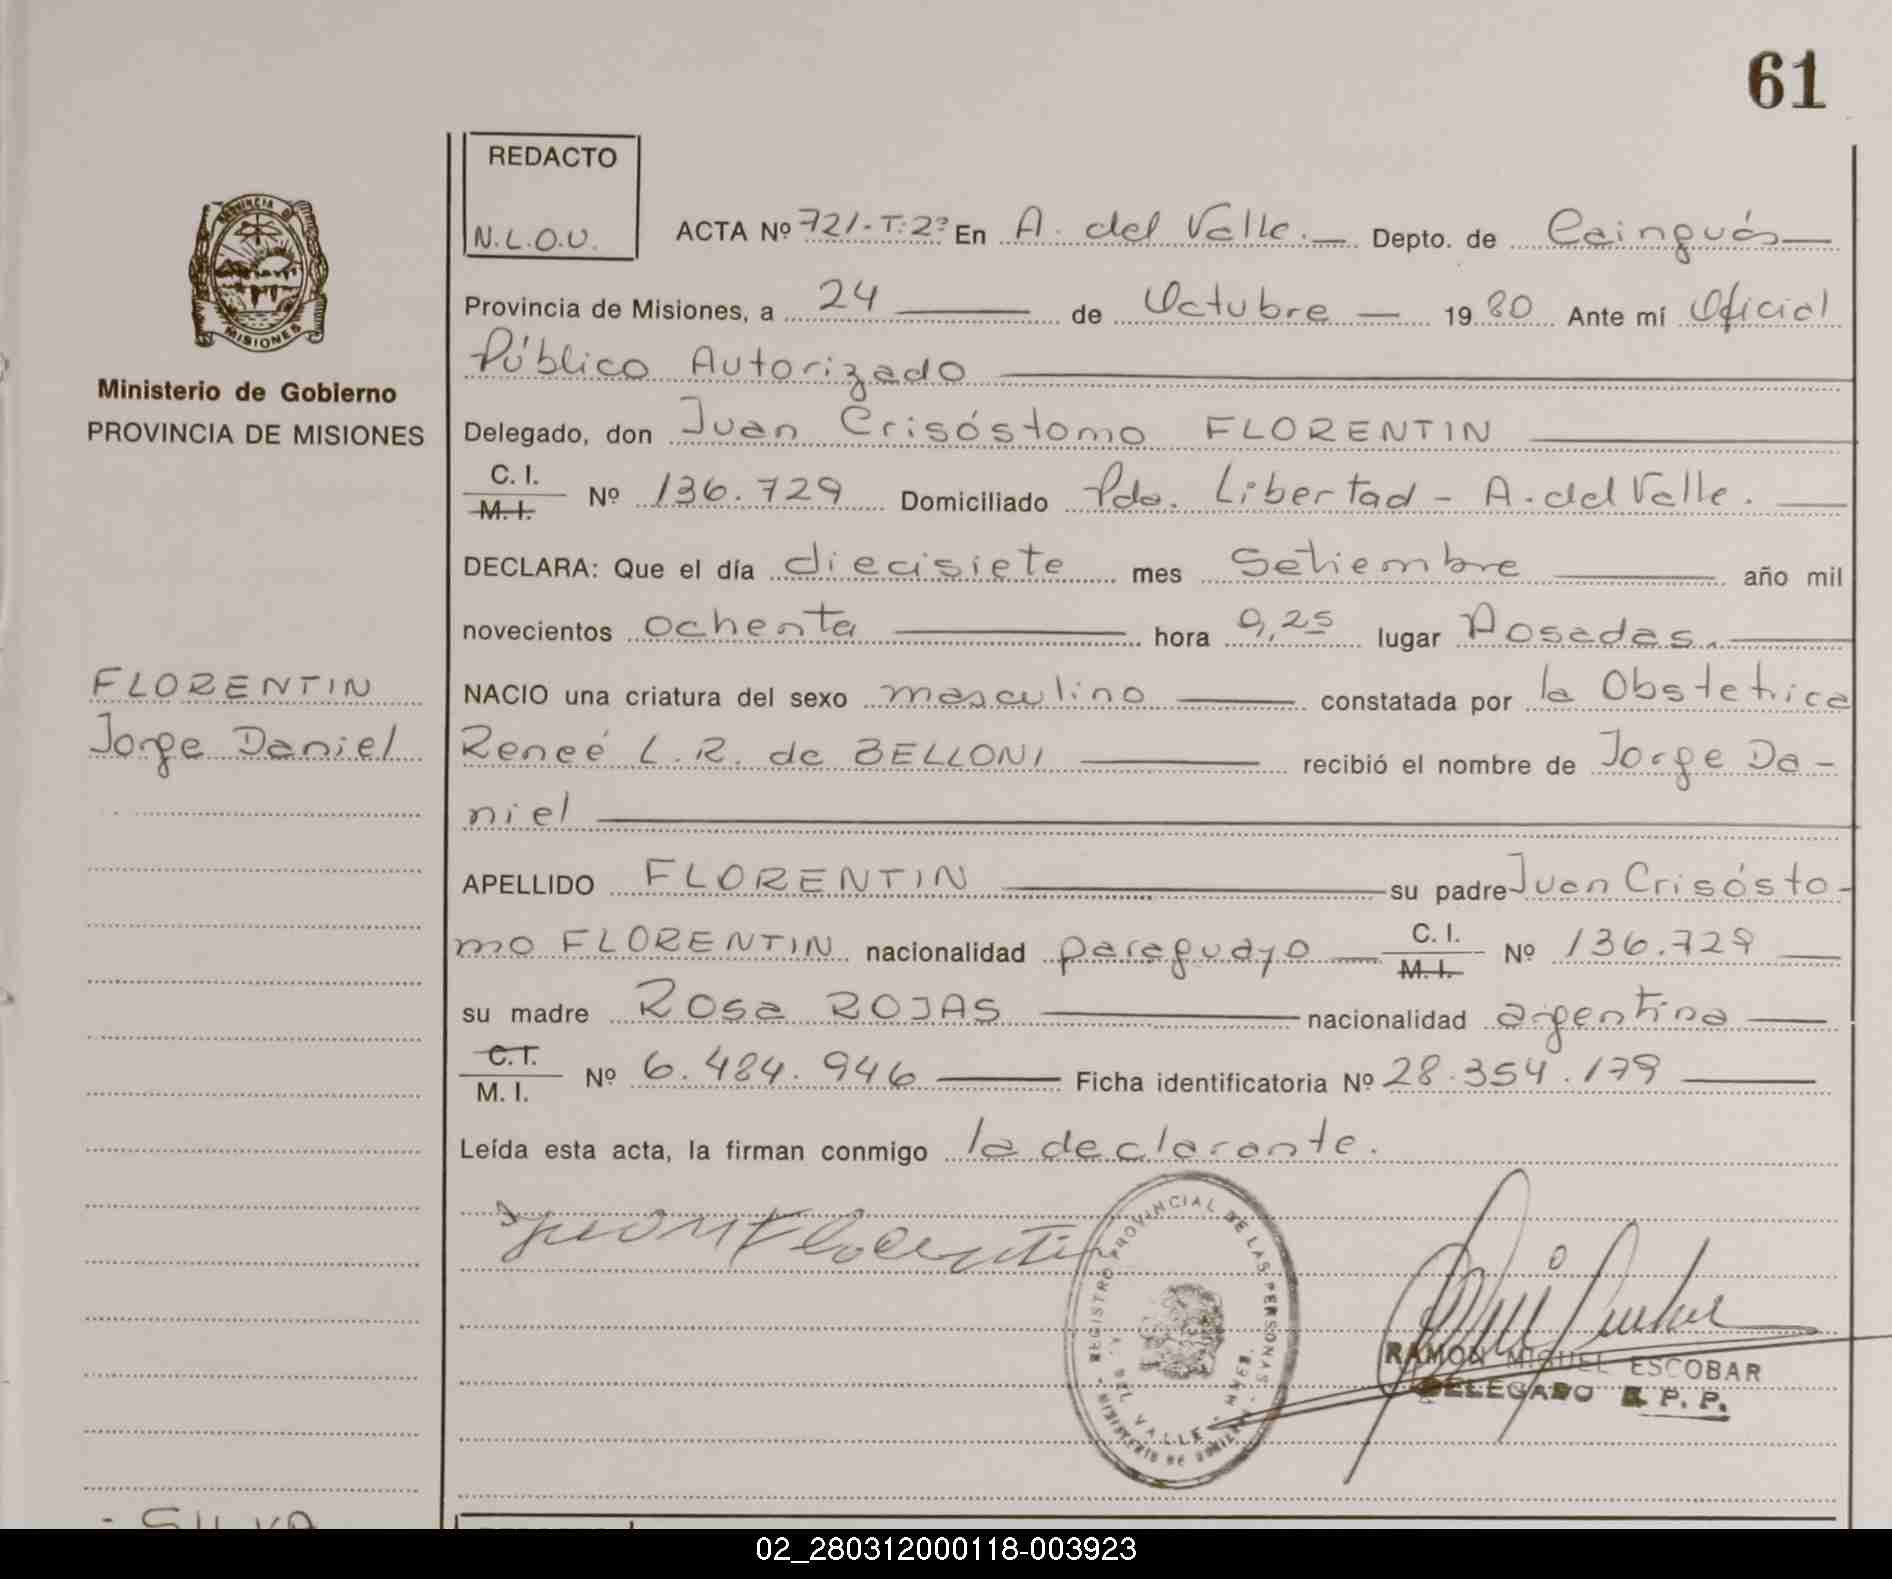 61
REDACTO
N.L.O.U.
PROVINCIA DE
MISIONES
Ministerio de Gobierno
PROVINCIA DE MISIONES
ACTA Nº 721-T:2º En A. del Valle.— Depto. de Cainguás—
Provincia de Misiones, a 24 — de Octubre — 1980 Ante mí Oficial
Público Autorizado —
Delegado, don Juan Crisóstomo FLORENTIN —
C. I.
M. I. Nº 136.729 Domiciliado Pdo. Libertad - A. del Valle. —
DECLARA: Que el día diecisiete mes Setiembre — año mil
novecientos ochenta — hora 9,25 lugar Posadas. —
FLORENTIN
Jorge Daniel
NACIO una criatura del sexo masculino — constatada por la Obstetrica
Reneé L. R. de BELLONI — recibió el nombre de Jorge Da-
niel —
APELLIDO FLORENTIN — su padre Juan Crisósto-
mo FLORENTIN nacionalidad paraguayo — C. I.
M. I. Nº 136.729 —
su madre Rosa ROJAS — nacionalidad argentina —
C. I.
M. I. Nº 6.484.946 — Ficha identificatoria Nº 28.354.179 —
Leída esta acta, la firman conmigo la declarante.
Juan Florentin
REGISTRO PROVINCIAL DE LAS PERSONAS
DEL VALLE
MINISTERIO DE
RAMON MIGUEL ESCOBAR
DELEGADO R. P. P.
SILVA
02_280312000118-003923